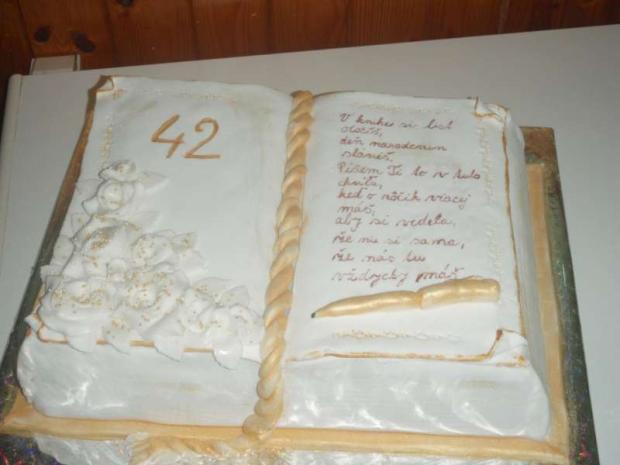 42
V knihe si list
otočíš,
deň narodenín
slávíš.
Píšem Ti to v tuto
chvíľu,
keď o rôčik viacej
máš,
aby si vedela,
že nie si sama,
že nás tu
vždycky máš